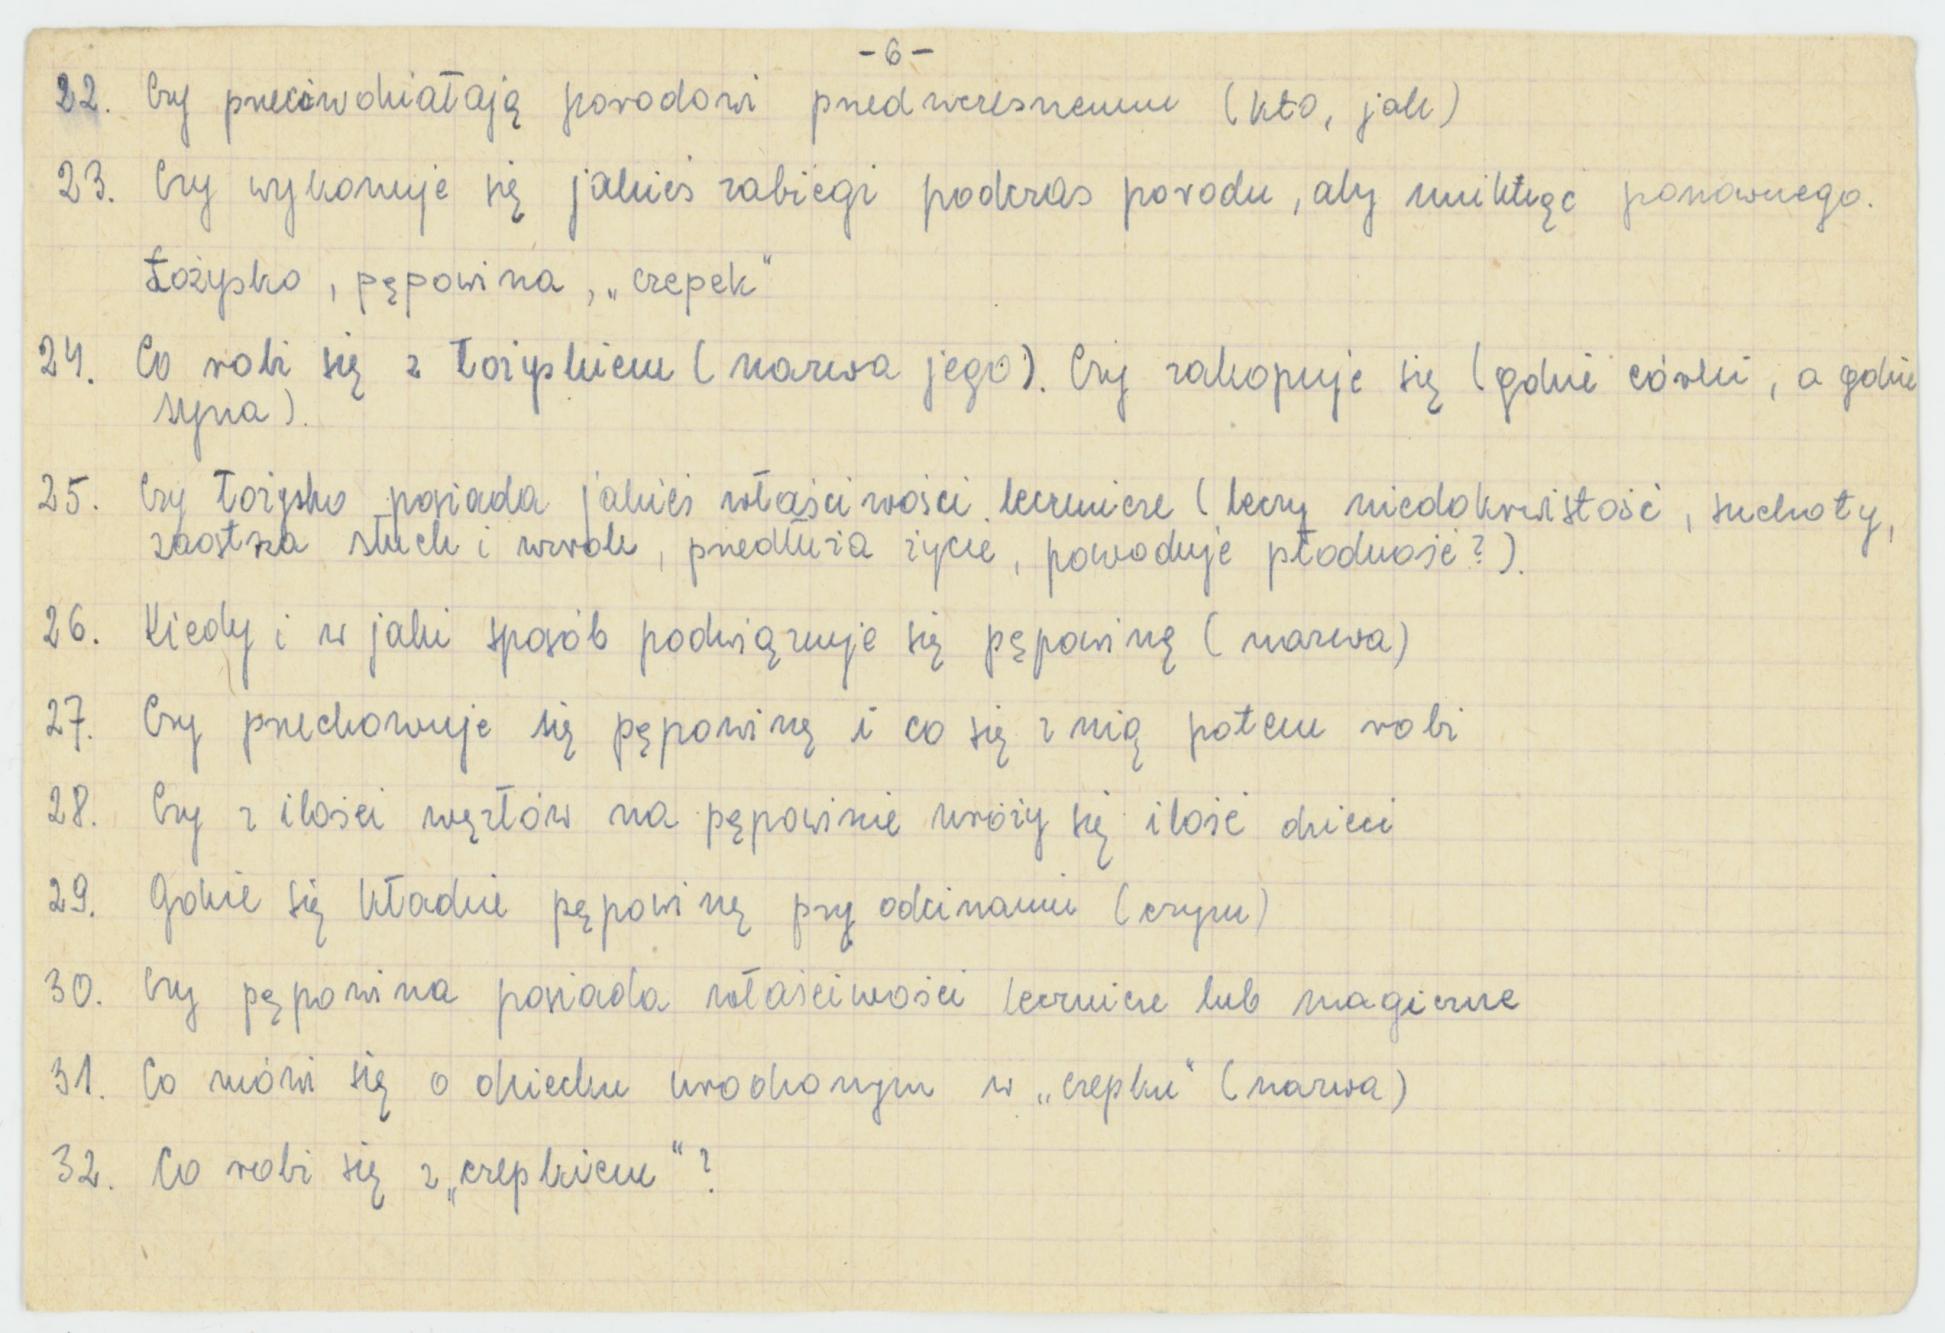 -6-
22. Czy przeciwdziałają porodowi przedwczesnemu (kto, jak)
23. Czy wykonuje się jakieś zabiegi podczas porodu, aby uniknąć ponownego.
Łożysko, pępowina, „czepek"
24. Co robi się z łożyskiem (nazwa jego). Czy zakopuje się (gdzie córki, a gdzie
syna).
25. Czy łożysko posiada jakieś właściwości lecznicze (leczy niedokrwistość, suchoty,
zaostrza słuch i wzrok, przedłuża życie, powoduje płodność?).
26. Kiedy i w jaki sposób podwiązuje się pępowinę (nazwa)
27. Czy przechowuje się pępowinę i co się z nią potem robi
28. Czy z ilości węzłów na pępowinie wróży się ilość dzieci
29. Gdzie się kładzie pępowinę przy odcinaniu (czym)
30. Czy pępowina posiada właściwości lecznicze lub magiczne
31. Co mówi się o dziecku urodzonym w „czepku" (nazwa)
32. Co robi się z „czepkiem"?